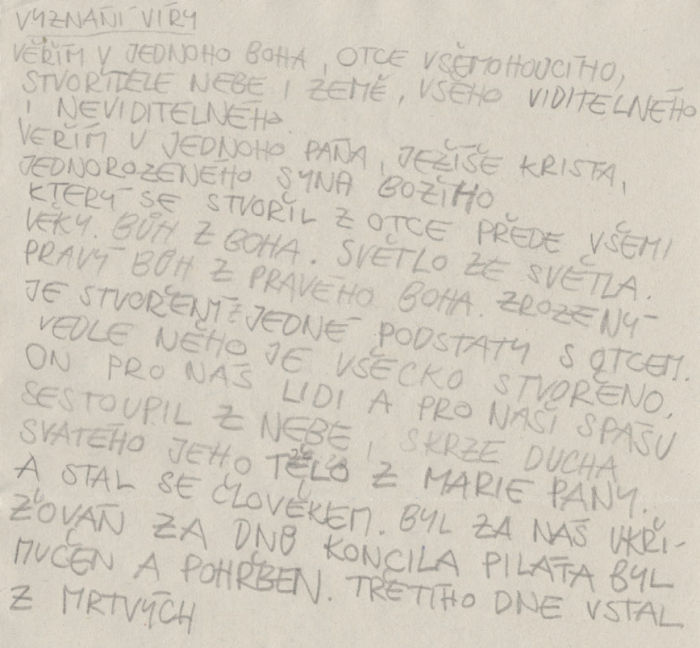 VYZNÁNÍ VÍRY
VĚŘÍM V JEDNOHO BOHA, OTCE VŠEMOHOUCÍHO,
STVOŘITELE NEBE I ZEMĚ, VŠEHO VIDITELNÉHO
I NEVIDITELNÉHO
VĚŘÍM V JEDNOHO PÁNA, JEŽÍŠE KRISTA,
JEDNOROZENÉHO SYNA BOŽÍHO
KTERÝ SE STVOŘIL Z OTCE PŘEDE VŠEMI
VĚKY. BŮH Z BOHA. SVĚTLO ZE SVĚTLA.
PRAVÝ BŮH Z PRAVÉHO BOHA. ZROZENÝ
JE STVOŘENÍ JEDNÉ PODSTATY S OTCEM.
VEDLE NĚHO JE VŠECKO STVOŘENO,
ON PRO NÁS LIDI A PRO NAŠI SPÁSU
SESTOUPIL Z NEBE, SKRZE DUCHA
SVATÉHO JEHO TĚLO Z MARIE PANY.
A STAL SE ČLOVĚKEM. BYL ZA NÁS UKŘI-
ŽOVÁN ZA DNŮ KONCILA PILÁTA BYL
MUČEN A POHŘBEN. TŘETÍHO DNE VSTAL
Z MRTVÝCH